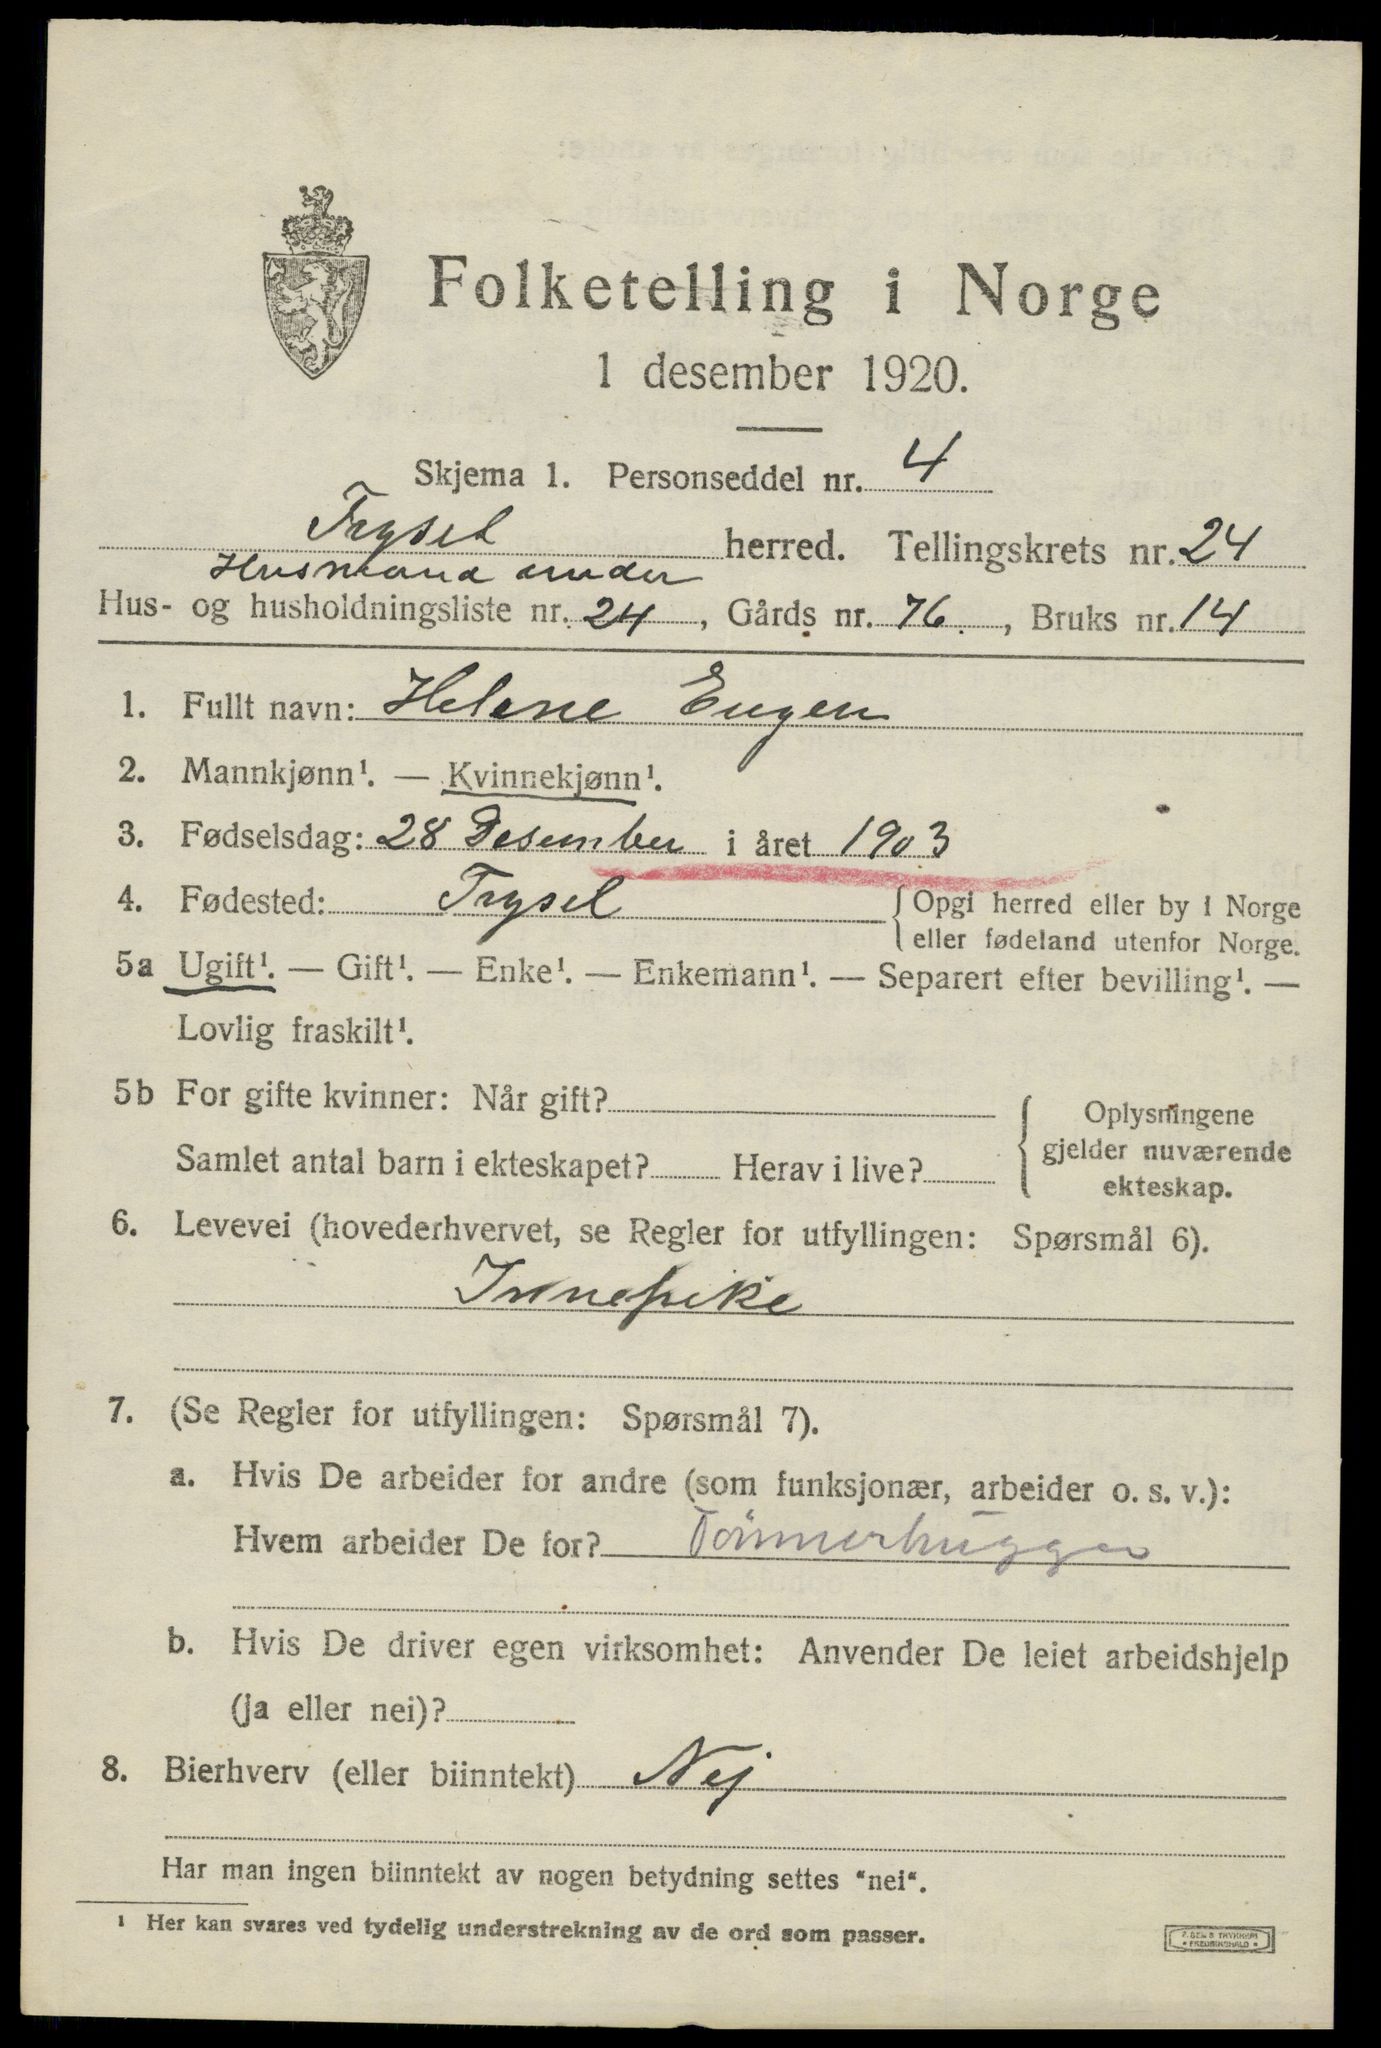 Folketelling i Norge
1 desember 1920.
Skjema 1. Personseddel nr. 4
Trysel herred. Tellingskrets nr. 24
Husmand under
Hus- og husholdningsliste nr. 24, Gårds nr. 76, Bruks nr. 14
1. Fullt navn: Helene Eugen
2. Mannkjønn¹. — Kvinnekjønn¹.
3. Fødselsdag: 28 Desember i året 1903
4. Fødested: Trysel { Opgi herred eller by i Norge
eller fødeland utenfor Norge.
5a Ugift¹. — Gift¹. — Enke¹. — Enkemann¹. — Separert efter bevilling¹. —
Lovlig fraskilt¹.
5b For gifte kvinner: Når gift?
Samlet antal barn i ekteskapet? Herav i live?
{ Oplysningene
gjelder nuværende
ekteskap.
6. Levevei (hovederhvervet, se Regler for utfyllingen: Spørsmål 6).
Innepike
7. (Se Regler for utfyllingen: Spørsmål 7).
a. Hvis De arbeider for andre (som funksjonær, arbeider o. s. v.):
Hvem arbeider De for? Tömmerhugger
b. Hvis De driver egen virksomhet: Anvender De leiet arbeidshjelp
(ja eller nei)?
8. Bierhverv (eller biinntekt) Nej
Har man ingen biinntekt av nogen betydning settes "nei".
¹ Her kan svares ved tydelig understrekning av de ord som passer.